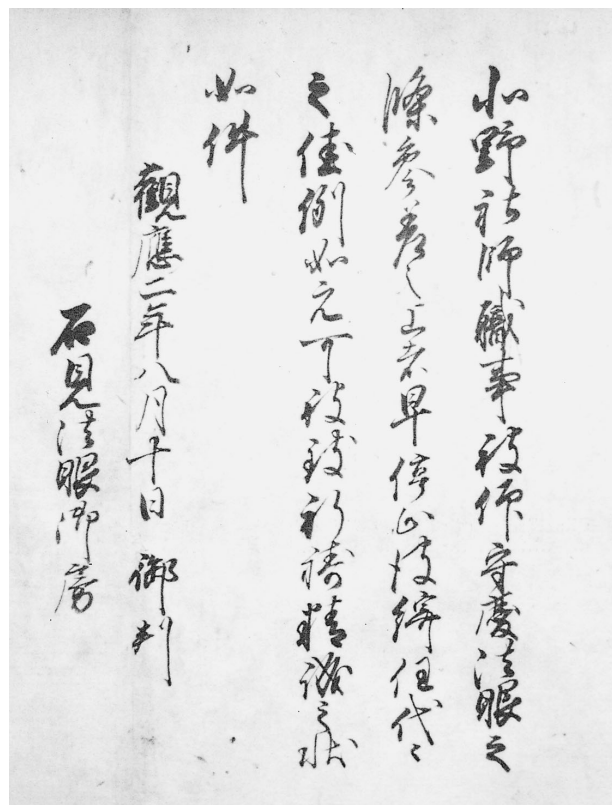 北野社師職事被仰守慶法眼之
條参差之上者早停止彼綺任代々
之佳例如元可被致祈禱精誠之状
如件
觀應二年八月十日 御判
石見法眼御房